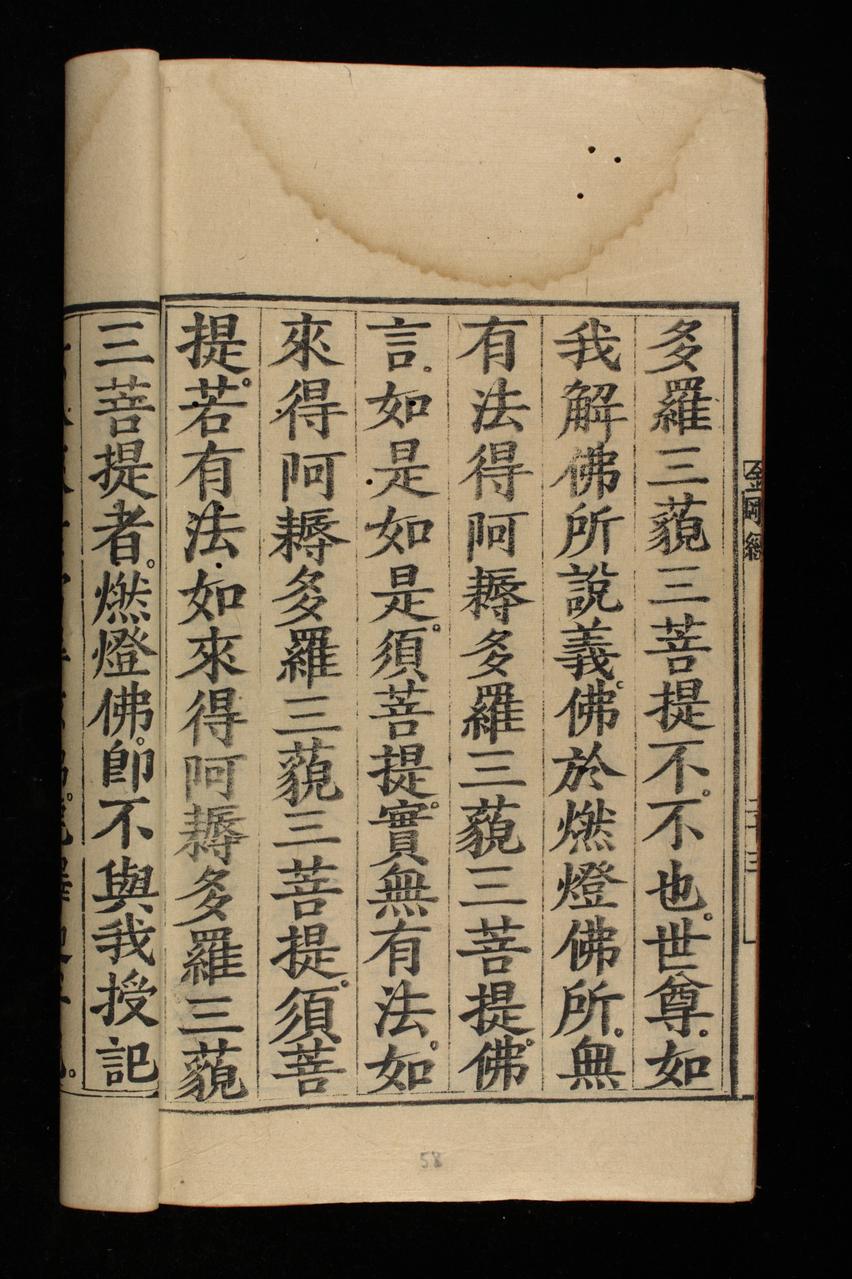 多羅三藐三菩提不。不也。世尊。如
我解佛所說義。佛於燃燈佛所。無
有法得阿耨多羅三藐三菩提。佛
言。如是如是。須菩提。實無有法。如
來得阿耨多羅三藐三菩提。須菩
提。若有法。如來得阿耨多羅三藐
三菩提者。燃燈佛。即不與我授記
金剛經
58